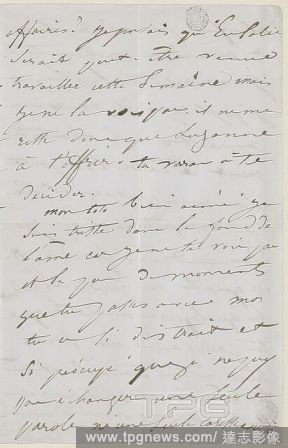 affaires? je pensais qu'Eulalie
serait peut-être venue
travailler cette semaine mais
je ne la vois pas. il ne me
reste donc que Suzanne
à t'offrir. tu verras à te
décider.
mon toto bien aimé, je
suis triste dans le fond de
l'âme car je ne te vois pas
et le peu de moments
que tu passes avec moi
tu es si distrait et
si préoccupé que je ne puis
pas échanger une seule
parole ni une seule caresse
TPG
www.tpgnews.com / 達志影像